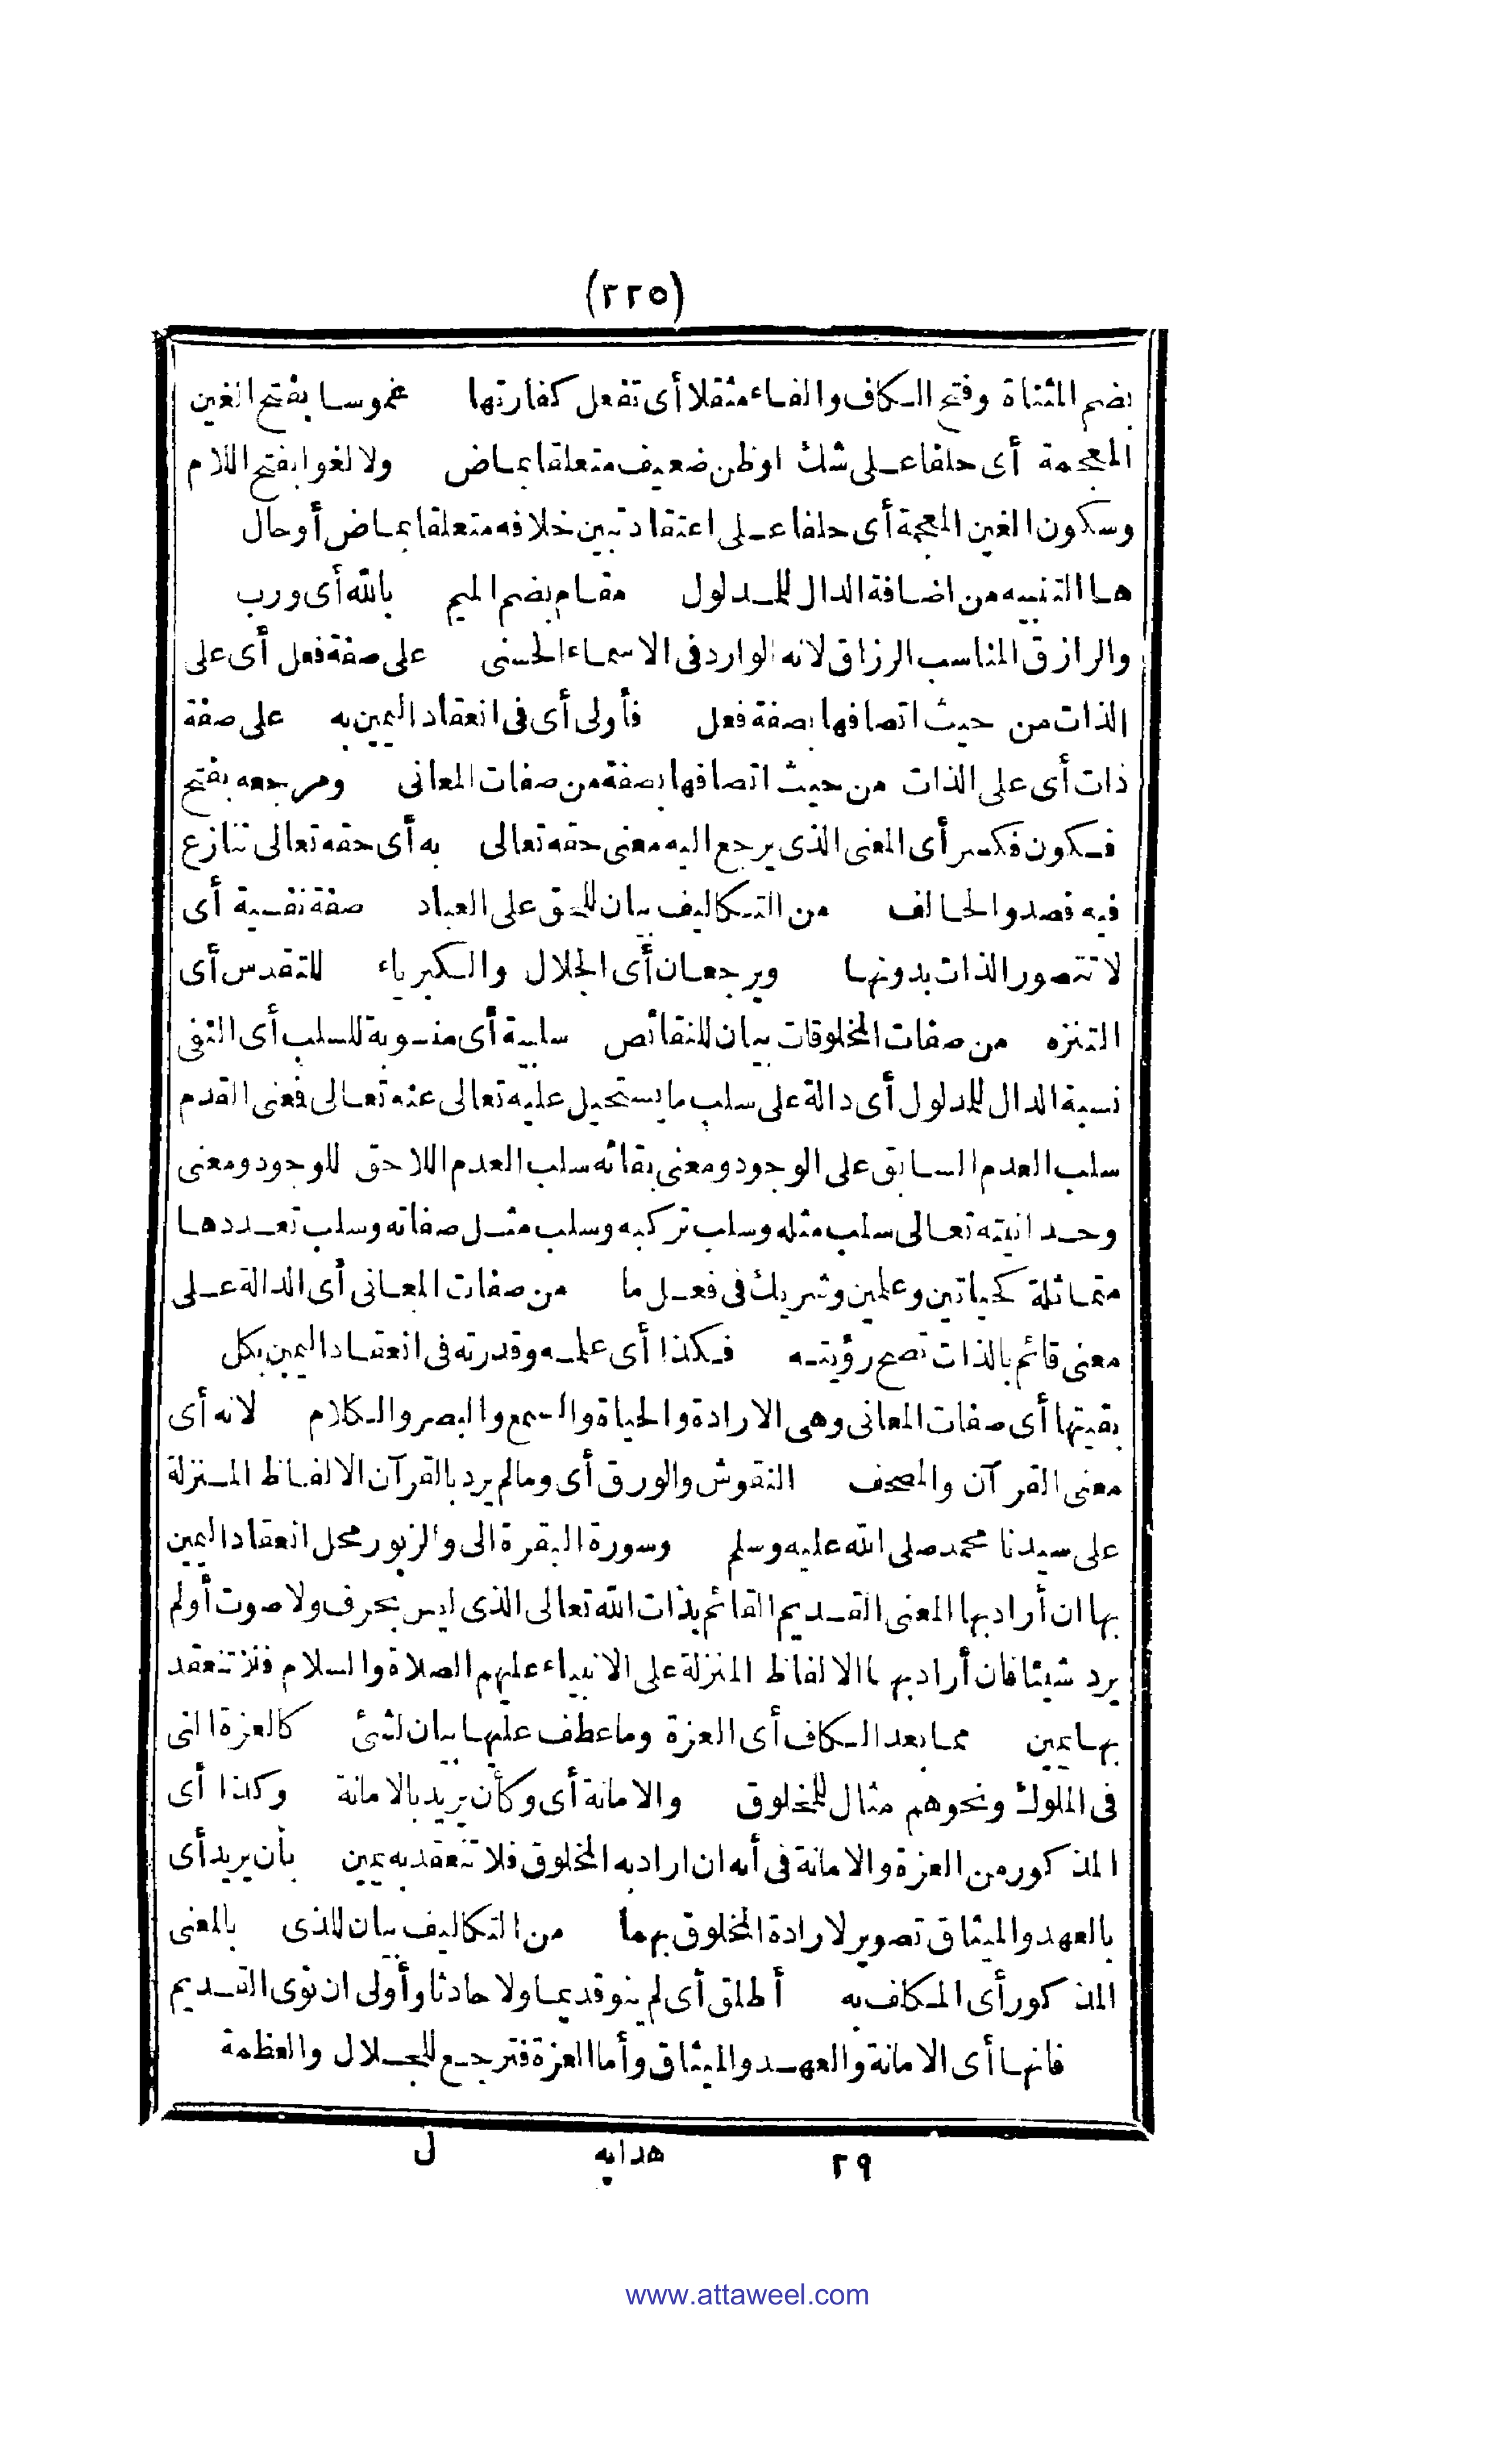 (٢٢٥)
بضم المثناة وفتح الكاف والفاء مثقلا أى تفعل كفارتها غموسا بفتح الغين
المعجمة أى حلفا على شك اوظن ضعيف متعلقا بماض ولا لغوا بفتح اللام
وسكون الغين المعجمة أى حلفا على اعتقاد تبين خلافه متعلقا بماض أوحال
ها التنبيه من اضافة الدال للمدلول مقام بضم الميم بالله أى ورب
والرازق المناسب الرزاق لانه الوارد فى الاسماء الحسنى على صفة فعل أى على
الذات من حيث اتصافها بصفة فعل فأولى أى فى انعقاد اليمين به على صفة
ذات أى على الذات من حيث اتصافها بصفة من صفات المعانى ومرجعه بفتح
فسكون فكسر أى المعنى الذى يرجع اليه معنى حقه تعالى به أى حقه تعالى تنازع
فيه قصدوا لحالف من التكاليف بيان للحق على العباد صفة نفسية أى
لا تتصور الذات بدونها ويرجعان أى الجلال والكبرياء للتقدس أى
التنزه من صفات المخلوقات بيان للنقائص سلبية أى منسوبة للسلب أى النفى
نسبة الدال للمدلول أى دالة على سلب ما يستحيل عليه تعالى عنه تعالى فمعنى القدم
سلب العدم السابق على الوجود ومعنى بقائه سلب العدم اللاحق للوجود ومعنى
وحدانيته تعالى سلب مثله وسلب تركبه وسلب مثل صفاته وسلب تعددها
متماثلة كحياتين وعلمين وشريك فى فعل ما من صفات المعانى أى الدالة على
معنى قائم بالذات تصح رؤيته فكذا أى علمه وقدرته فى انعقاد اليمين بكل
بقيتها أى صفات المعانى وهى الارادة والحياة والسمع والبصر والكلام لانه أى
معنى القرآن والمصحف النقوش والورق أى ومالم يرد بالقرآن الالفاظ المنزلة
على سيدنا محمد صلى الله عليه وسلم وسورة البقرة الى والزبور محل انعقاد اليمين
بها ان أراد بها المعنى القديم القائم بذات الله تعالى الذى ليس بحرف ولا صوت أولم
يرد شيئا فان أراد بها الالفاظ المنزلة على الانبياء عليهم الصلاة والسلام فلا تنعقد
بها يمين مما بعد الكاف أى العزة وما عطف عليها بيان لشئ كالعزة التى
فى الملوك ونحوهم مثال للمخلوق والامانة أى وكأن يريد بالامانة وكذا أى
المذكور من العزة والامانة فى أنه ان اراد به المخلوق فلا تنعقد به يمين بأن يريد أى
بالعهد والميثاق تصوير لارادة المخلوق بهما من التكاليف بيان للذى بالمعنى
المذكور أى المكلف به أطلق أى لم ينو قديما ولا حادثا وأولى ان نوى القديم
فانها أى الامانة والعهد والميثاق وأما العزة فترجع للجلال والعظمة
٢٩ هدايه ل
www.attaweel.com